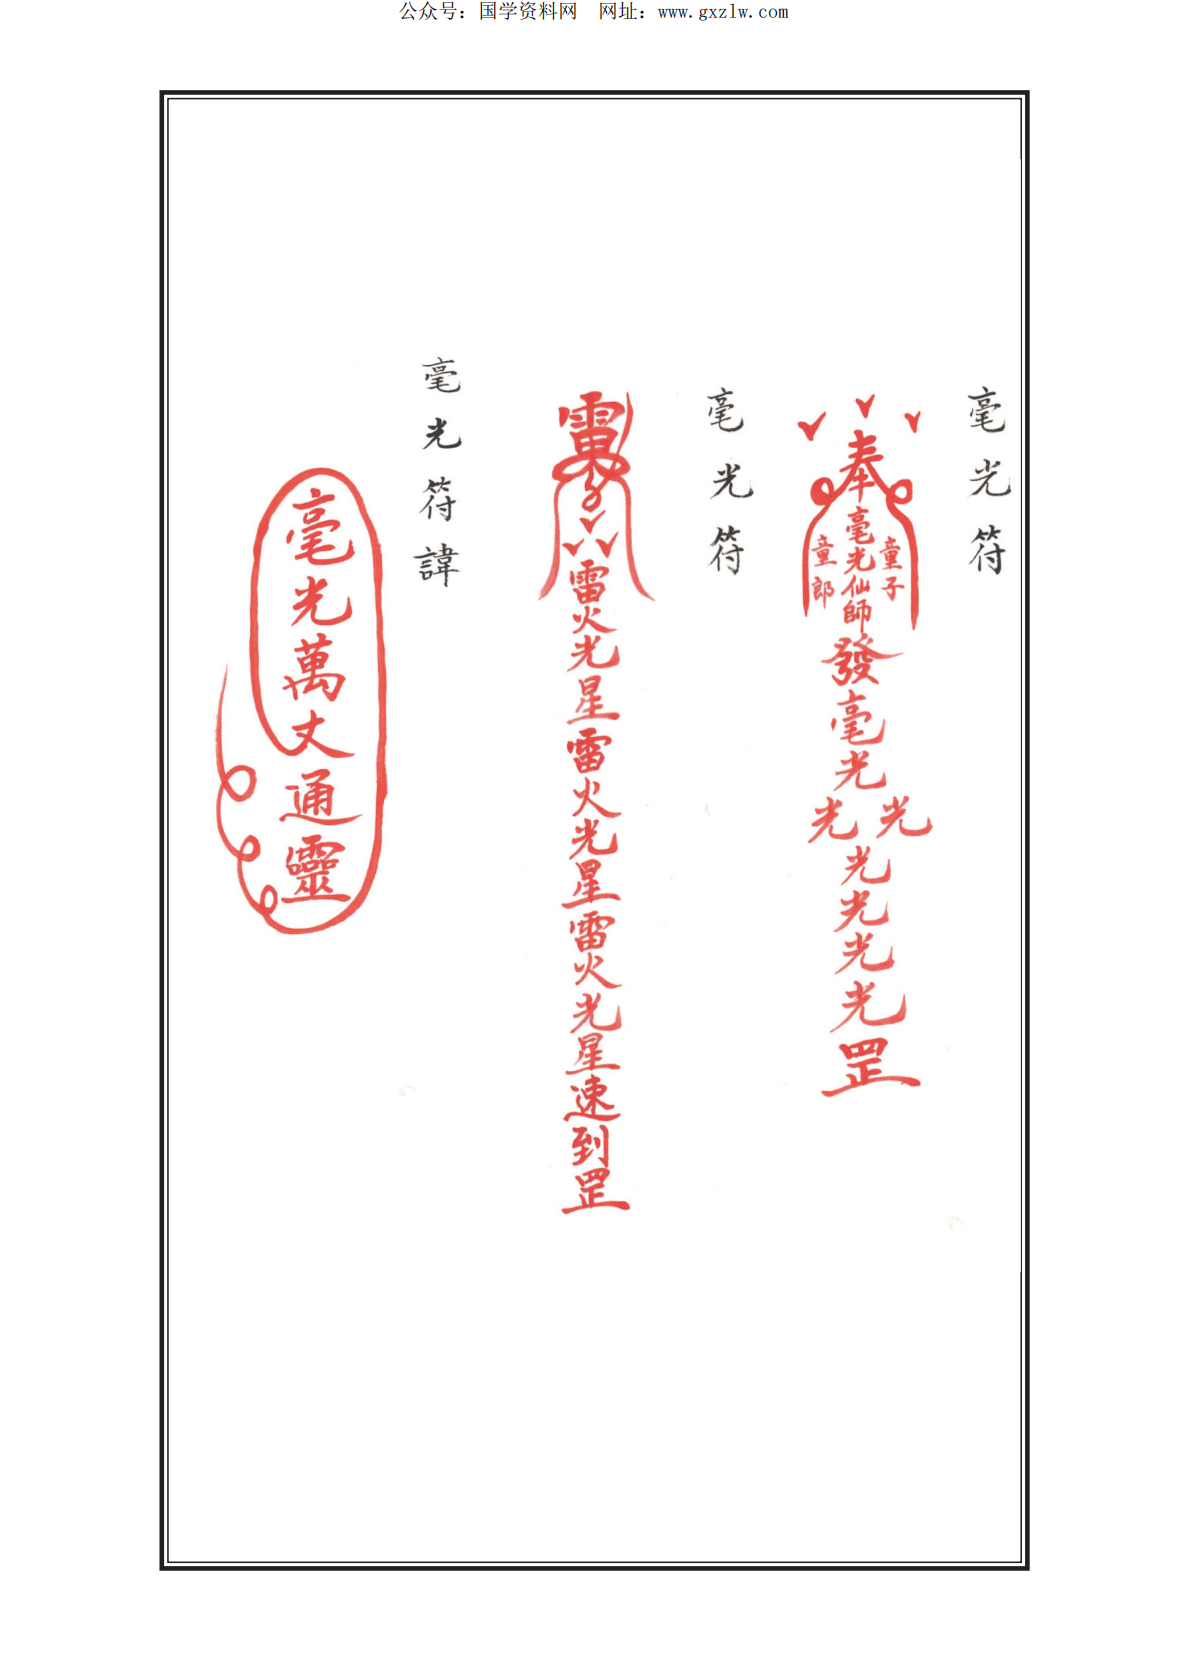 公众号：国学资料网　网址：www.gxzlw.com
毫光符
奉
毫光仙師
童子
童郎
發毫光
光光
光光光光罡
毫光符
雷火光星雷火光星雷火光星速到罡
毫光符諱
毫光萬丈通靈